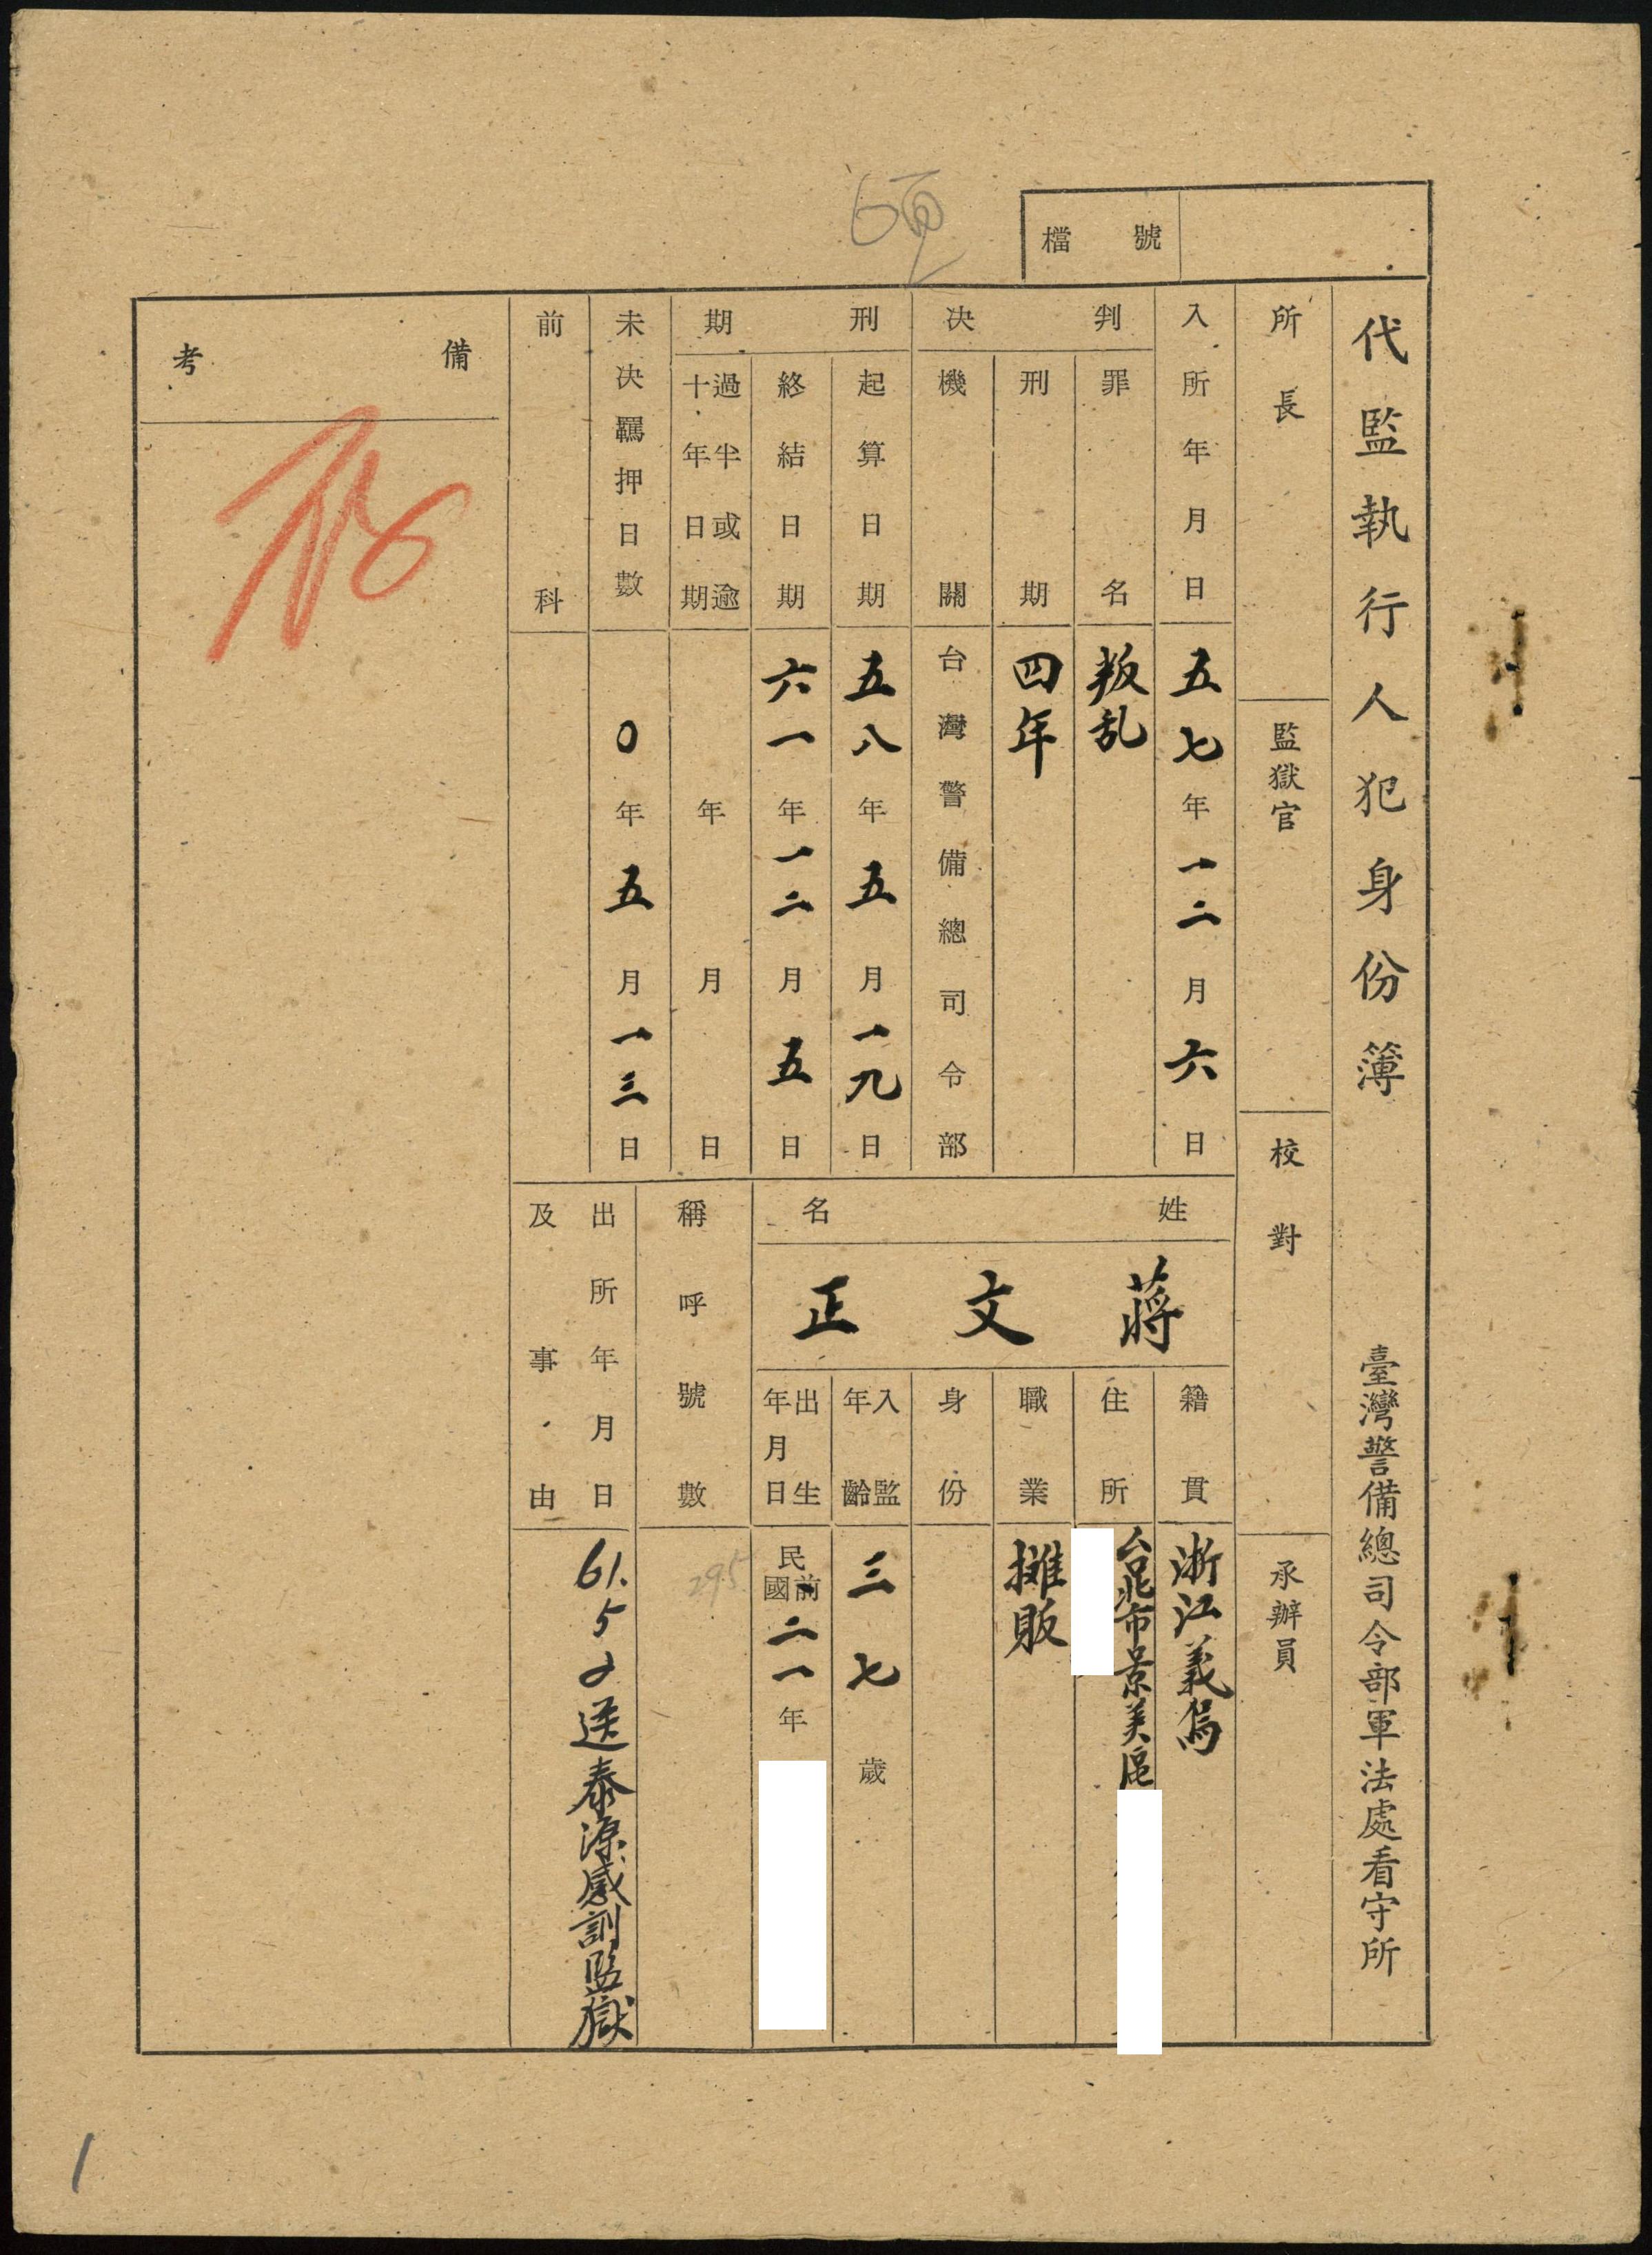 6頁
檔號
代監執行人犯身份簿
臺灣警備總司令部軍法處看守所
所長
監獄官
校對
承辦員
入所年月日
五七年一二月六日
判決
罪名
叛乱
刑期
四年
機關
台灣警備總司令部
刑期
起算日期
五八年五月一九日
終結日期
六一年一二月五日
過半或逾十年日期
年月日
未決羈押日數
0年五月一三日
前科
姓名
蔣文正
籍貫
浙江義烏
住所
台北市景美區
職業
攤販
身份
入監年齡
三七歲
出生年月日
民國前二一年
稱呼號數
295
出所年月日及事由
61.5.2送泰源感訓監獄
備考
1